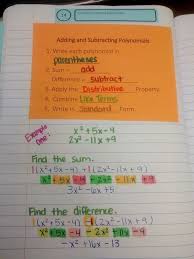 Adding and Subtracting Polynomials
1. Write each polynomial in
parentheses
2. Sum = add
Difference = subtract
3. Apply the Distributive Property.
4. Combine Like Terms
5. Write in Standard Form.
Example
One:
x²+5x-4
2x²-11x+9
Find the sum.
1(x²+5x-4)+1(2x²-11x+9)
x²+5x-4+2x²-11x+9
3x²-6x+5
Find the difference.
1(x²+5x-4)-1(2x²-11x+9)
x²+5x-4-2x²+11x-9
-x²+16x-13